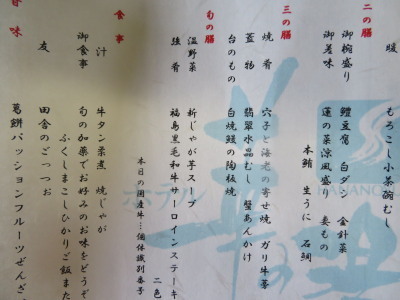 暖 もろこし小茶碗むし
二の膳
御椀盛り 鱧豆腐 白ダツ 金針菜
御造味 蓮の葉涼風盛り 妻もの
本鮪 生うに 石鯛
三の膳
焼肴 穴子と海老の寄せ焼 ガリ牛蒡
蓋物 翡翠水晶むし 蟹あんかけ
台のもの 白焼鰻の陶板焼
旬の膳
温野菜 新じゃが芋スープ
強肴 福島黒毛和牛サーロインステーキ
二色
本日の国産牛…個体識別番号
食事
汁 牛タン菜煮 焼じゃが
御食事 旬の加薬でお好みのお味をどうぞ
ふくしまこしひかりご飯また
友 田舎のごっつお
甘味 葛餅パッションフルーツぜんざ
ホテル
HANANO